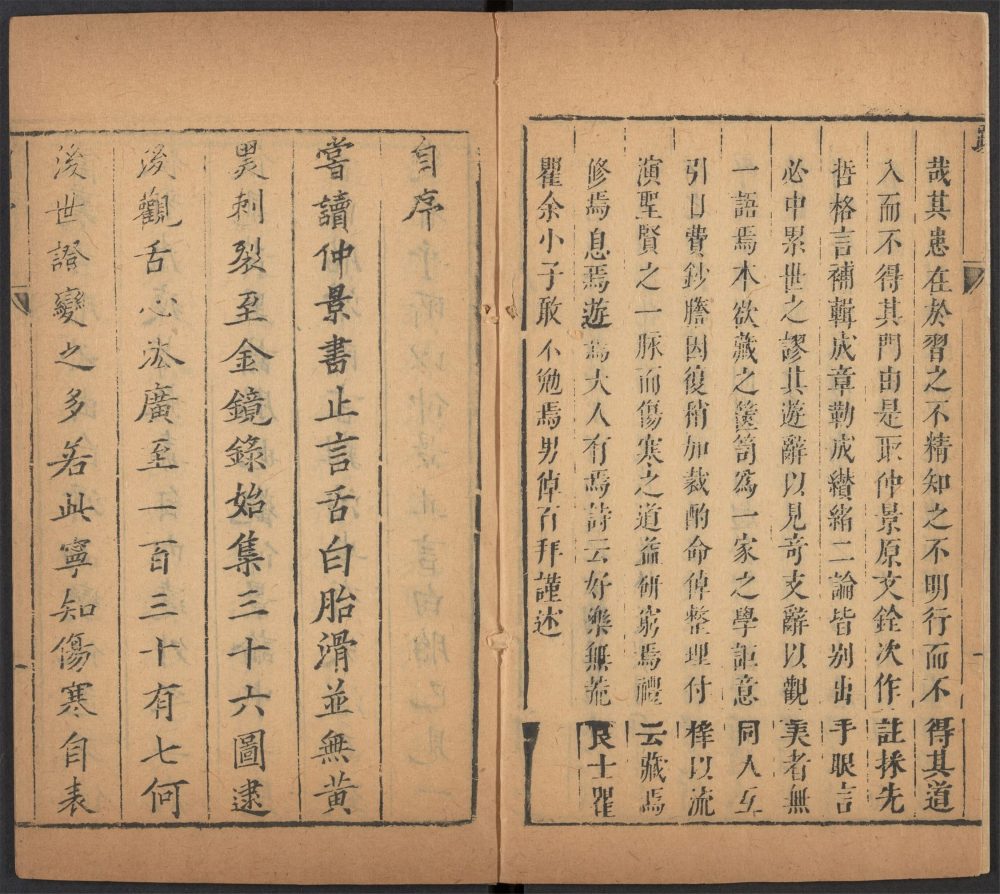 哉其患在於習之不精知之不明行而不得其道
入而不得其門由是取仲景原文銓次作註採先
哲格言補輯成章勒成纘緒二論皆別出手眼言
必中累世之謬其遊辭以見奇支辭以觀美者無
一語焉本欲藏之篋笥為一家之學詎意同人互
引日費鈔謄因復稍加裁酌命倬整理付梓以流
演聖賢之一脈而傷寒之道益研窮焉禮云藏焉
修焉息焉遊焉大人有焉詩云好樂無荒良士瞿
瞿余小子敢不勉焉男倬百拜謹述
自序
嘗讀仲景書止言舌白胎滑並無黃
黑刺裂至金鏡錄始集三十六圖逮
後觀舌心法廣至一百三十有七何
後世證變之多若此寧知傷寒自表